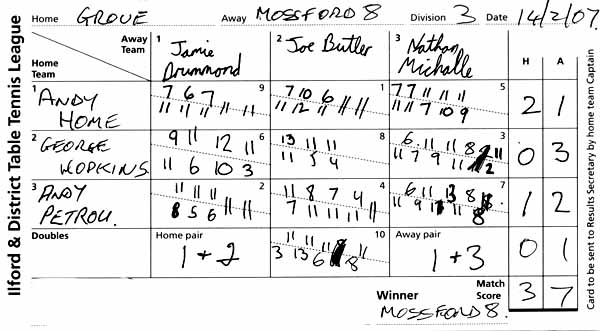 Ilford & District Table Tennis League
Home GROVE Away MOSSFORD 8 Division 3 Date 14/2/07.
Away Team 1 Jamie Drummond 2 Joe Butler 3 Nathan Michalle H A
Home Team
1 ANDY HOME
9
7 6 7
11 11 11 11 11
1
7 10 6
11 12 11 11 11
5
7 7 11 11 11
11 11 7 10 9
2 1
2 GEORGE HOPKINS
6
9 11 12 11
11 6 10 3
8
13 11 11
11 5 4
3
6 11 11 8
11 7 9 11 11
0 3
3 ANDY PETROU.
2
11 11 11
8 5 6 11 11
4
11 8 7 4
7 11 11 11 11
7
6 11 13 8
11 9 11 11 8
1 2
Doubles
Home pair
1 + 2
10
11 11 11 11
3 13 6 8
Away pair
1 + 3
0 1
Winner Match Score 3 7
MOSSFORD 8.
Card to be sent to Results Secretary by home team Captain